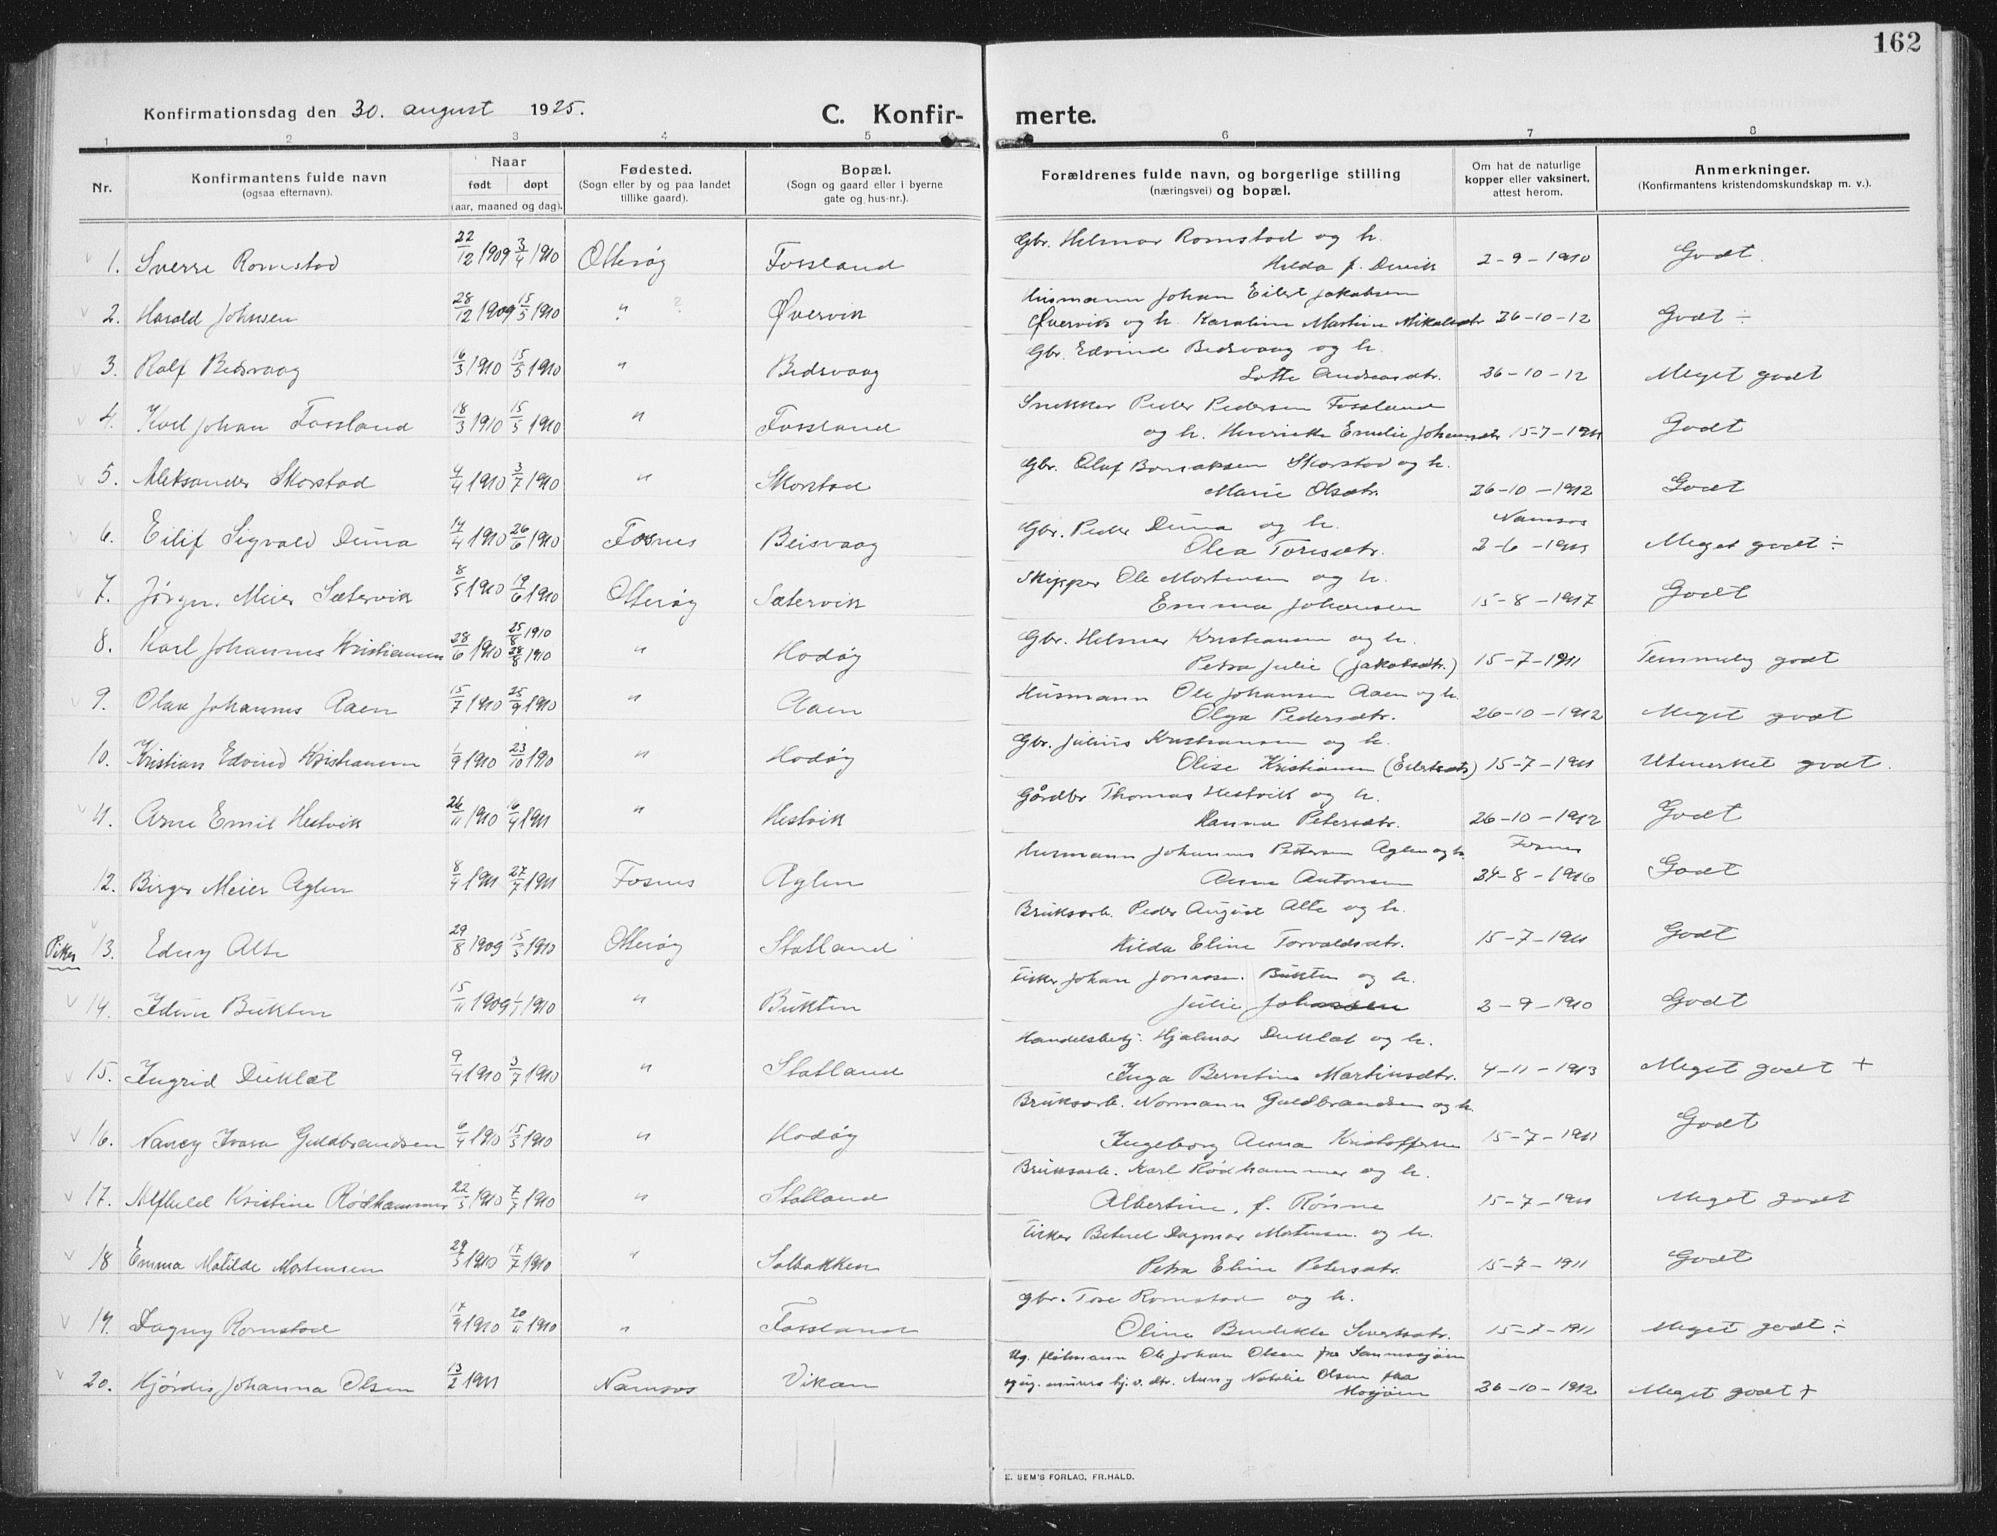 162
Konfirmationsdag den 30. august 1925.
C. Konfir-
merte.
1 2 3 4 5 6 7 8
Nr.
Konfirmantens fulde navn
(ogsaa efternavn).
Naar
født døpt
(aar, maaned og dag).
Fødested.
(Sogn eller by og paa landet
tillike gaard).
Bopæl.
(Sogn og gaard eller i byerne
gate og hus-nr.).
Forældrenes fulde navn, og borgerlige stilling
(næringsvei) og bopæl.
Om hat de naturlige
kopper eller vaksinert,
attest herom.
Anmerkninger.
(Konfirmantens kristendomskundskap m. v.).
Gbr. Helmar Romstad og h.
1. Sverre Romstad 22/12 1909 3/4 1910 Otterøy Fossland Hilda f. Dervik 2-9-1910 Godt.
Husmann Johan Eilert Jakobsen
2. Harald Johnsen 28/12 1909 15/5 1910 " ? Øvervik Øvervik og h. Karoline Martine Mikalsdtr 26-10-12 Godt ÷
Gbr. Edvind Bedsvaag og h.
3. Rolf Bedsvaag 16/3 1910 15/5 1910 " Bedsvaag Lotte Andreasdtr. 26-10-12 Meget godt
Snekker Peder Pedersen Fossland
4. Karl Johan Fossland 18/3 1910 15/5 1910 " Fossland og h. Henrikke Emelie Johannsdtr 15-7-1911 Godt
Gbr. Oluf Skorstad og h.
5. Aleksander Skorstad 4/4 1910 3/7 1910 " Skorstad Marie Olsdtr. 26-10-1912 Godt
Gbr. Peder Duna og h. Namsos
6. Eilif Sigvald Duna 14/4 1910 26/6 1910 Fosnes Beisvaag Olea Toresdtr. Meget godt ÷
Skipper Ole Mortensen og h.
7. Jørgen Meier Sætervik 8/5 1910 19/6 1910 Otterøy Sætervik Emma Johansen 15-8-1917 Godt
Gbr. Helmer Kristiansen og h.
8. Karl Johannes Kristiansen 28/6 1910 25/8 1910 28/8 1910 " Hodøy Petra Julie (Jakobsdtr.) 15-7-1911 Temmelig godt
Husmann Ole Johansen Aaen og h.
9. Olav Johannes Aaen 15/7 1910 25/9 1910 " Aaen Olga Pedersdtr. 26-10-1912 Meget godt
Gbr. Julius Kristiansen og h.
10. Kristian Edvind Kristiansen 1/9 1910 23/10 1910 " Hodøy Olise Kristiansen (Eilertsdtr) 15-7-1911 Utmerket godt.
Gårdbr Thomas Hestvik og h.
11. Arne Emil Hestvik 26/11 1910 16/4 1911 " Hestvik Hanna Petersdtr. 26-10-1912 Godt
Husmann Johannes Pettersen Aglen og h. Fosnes
12. Birger Meier Aglen 8/4 1911 27/7 1911 Fosnes Aglen Anna Antonsen 24-8-1916 Godt
Bruksarb. Peder August Alte og h.
Piker 13. Edny Alte 29/8 1909 15/5 1910 Otterøy Statland Hilda Eline Torvaldsdtr. 15-7-1911 Godt
Fisker Johan Jonassen Bukten og h.
14. Idun Bukten 15/11 1909 1/1 1910 " Bukten Julie Johansen 2-9-1910 Godt
Handelsbetj. Hjalmar Duklæt og h.
15. Ingrid Duklæt 9/4 1910 3/7 1910 " Statland Inga Berntine Martinsdtr. 4-11-1913 Meget godt +
Bruksarb. Normann Guldbrandsen og h.
16. Nancy Ivara Guldbrandsen 6/4 1910 15/5 1910 " Hodøy Ingeborg Anna Kristoffersen 15-7-1911 Godt
Bruksarb. Karl Rødhammer og h.
17. Alfhild Kristine Rødhammer 22/5 1910 7/7 1910 " Statland Albertine, f. Rønne 15-7-1911 Meget godt
Fisker Dagmar Mortensen og h.
18 Emma Matilde Mortensen 29/5 1910 17/7 1910 " Solbakken Petra Eline Petersdtr. 15-7-1911 Godt
Gbr. Tore Romstad og h.
19. Dagny Romstad 17/9 1910 20/11 1910 " Fossland Oline Bendikte Sivertsdtr. 15-7-1911 Meget godt ÷
Ug. fløtmann Ole Johan Olsen fra Sannessjøen
20. Hjørdis Johanna Olsen 13/2 1911 Namsos Vikan og ug. Natalie Olsen fra
Mosjøen 26-10-1912 Meget godt +
E. SEM'S FORLAG, FR.HALD.